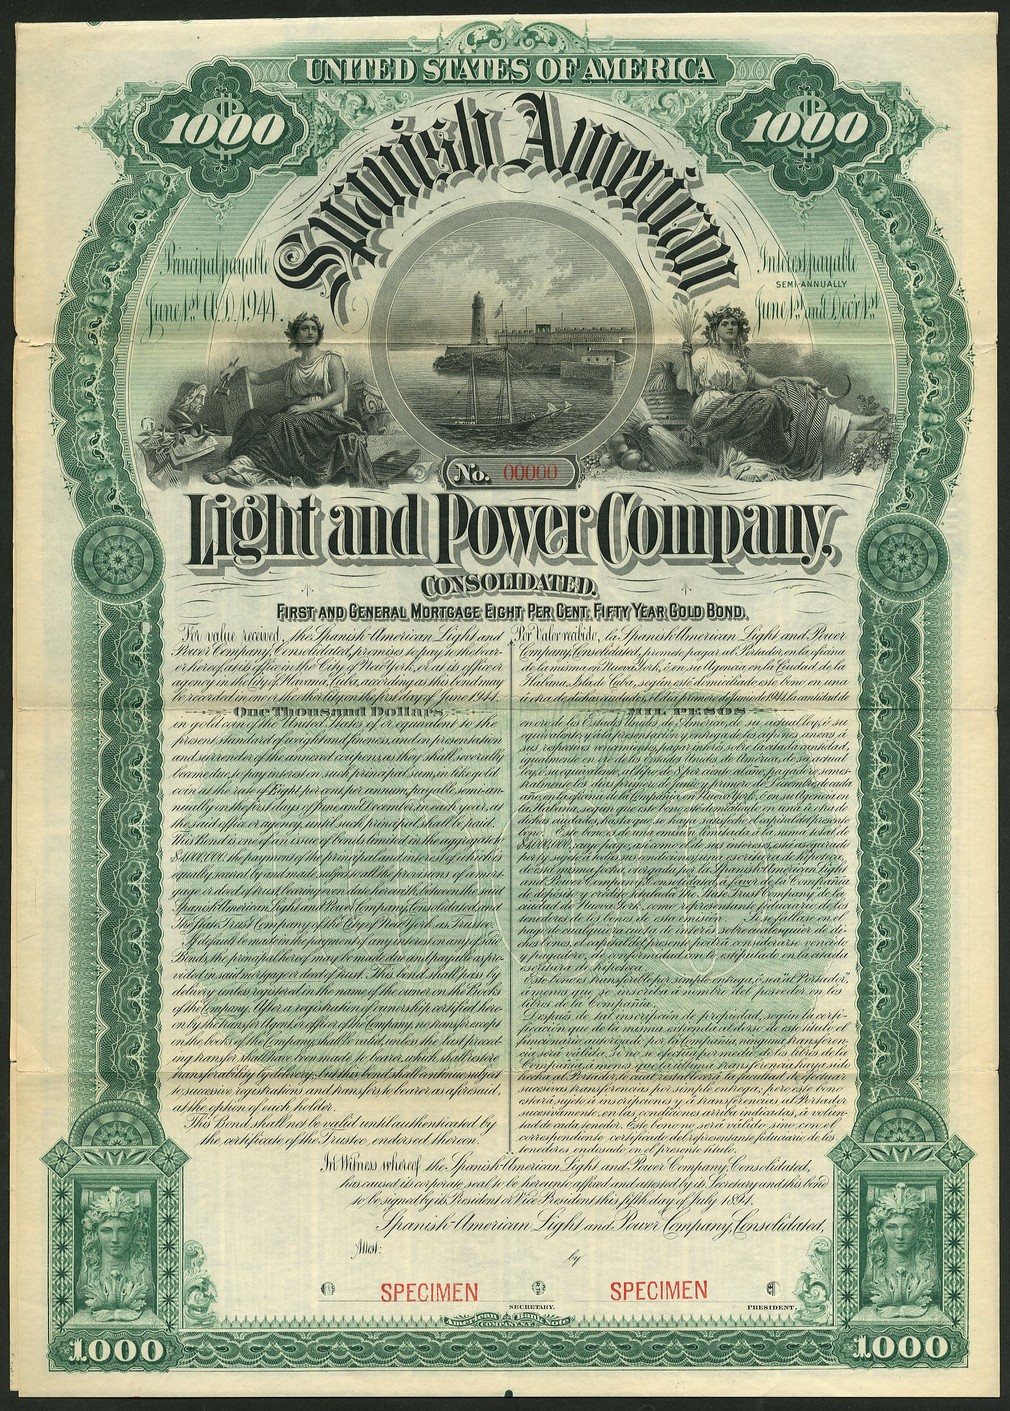 UNITED STATES OF AMERICA
1000
1000
Spanish American
Principal payable
June 1st A.D. 1944.
Interest payable
SEMI-ANNUALLY
June 1st and Dec'r 1st
No. 00000
Light and Power Company,
CONSOLIDATED.
FIRST AND GENERAL MORTGAGE EIGHT PER CENT. FIFTY YEAR GOLD BOND.
For value received, the Spanish-American Light and
Power Company, Consolidated, promises to pay to the bear-
er hereof, at its office in the City of New York, or at its office or
agency in the City of Havana, Cuba, according as this bond may
be recorded in one or the other city, on the first day of June 1944,
One Thousand Dollars
in gold coin of the United States of or equivalent to the
present standard of weight and fineness, and on presentation
and surrender of the annexed coupons, as they shall severally
become due, to pay interest on such principal sum, in like gold
coin at the rate of Eight per cent per annum, payable semi-an-
nually on the first days of June and December, in each year, at
the said office or agency, until such principal shall be paid.
This Bond is one of an issue of bonds limited in the aggregate to
$4,000,000, the payment of the principal and interest of which is
equally secured by and made subject to all the provisions of a mort-
gage or deed of trust, bearing even date herewith between the said
Spanish-American Light and Power Company, Consolidated, and
The State Trust Company of the City of New York, as Trustee.
If default be made in the payment of any interest on any of said
Bonds, the principal hereof may be made due and payable as pro-
vided in said mortgage or deed of trust. This bond shall pass by
delivery unless registered in the name of the owner, on the Books
of the Company. After a registration of ownership certified here-
on by the transfer Agent, or officer of the Company, no transfer except
on the books of the Company shall be valid, unless the last preced-
ing transfer shall have been made to bearer, which shall restore
transferability by delivery; but this bond shall continue subject
to successive registrations and transfers to bearer, as aforesaid,
at the option of each holder.
This Bond shall not be valid until authenticated by
the certificate of the Trustee, endorsed thereon.
Por Valor recibido, la Spanish-American Light and Power
Company, Consolidated, promete pagar al Portador, en la oficina
de la misma en Nueva York, ó en su Agencia en la Ciudad de la
Habana, Isla de Cuba, según esté domiciliado este bono en una
ú otra de dichas ciudades, el dia primero de Junio de 1944, la cantidad de
MIL PESOS
en oro de los Estados Unidos de América, de su actual ley, ó su
equivalente, y á la presentación y entrega de los cupones anexos, á
sus respectivos vencimientos, pagar interés, sobre la citada cantidad,
igualmente en oro de los Estados Unidos de América, de su actual
ley, ó su equivalente, al tipo de 8 por ciento al año, pagadero semes-
tralmente los dias primero de Junio y primero de Diciembre de cada
año, en la oficina de la Compañia en Nueva York, ó en su Agencia en
la Habana, según que este bono esté domiciliado en una ó otra de
dichas ciudades, hasta que se haya satisfecho el capital del presente
bono. Este bono es de una emisión limitada á la suma total de
$4,000,000, cuyo pago, así como el de sus intereses, está asegurado
por y sujeto á todas sus condiciones, una escritura de hipoteca,
de esta misma fecha, otorgada por la Spanish-American Light
and Power Company, Consolidated, á favor de la Compañia
de depósito y crédito titulada The State Trust Company de la
ciudad de Nueva York, como representante fiduciario de los
tenedores de los bonos de esta emisión. Si se fallase en el
pago de cualquiera cuota de interés sobre cualquier de di-
chos bonos, el capital del presente podrá considerarse vencido
y pagadero, de conformidad con lo estipulado en la citada
escritura de hipoteca.
Este bono es transferible por simple entrega, ó sea "al Portador",
á menos que se inscriba á nombre del poseedor, en los
libros de la Compañia.
Después de tal inscripción de propiedad, según la certi-
ficación que de la misma, extienda al dorso de este título el
funcionario autorizado por la Compañia, ninguna transferen-
cia será válida, si no se efectúa por medio de los libros de la
Compañia, á menos que la última transferencia haya sido
hecha al Portador, lo cual restablecerá la facultad de efectuar
sucesivas transferencias por simple entrega; pero este bono
estará sujeto á inscripciones y á transferencias al Portador
sucesivamente, en las condiciones arriba indicadas, á volun-
tad de cada tenedor. Este bono no será válido sino con el
correspondiente certificado del representante fiduciario de los
tenedores, endosado en el presente título.
In Witness whereof the Spanish-American Light and Power Company, Consolidated,
has caused its corporate seal to be hereunto affixed and attested by its Secretary and this bond
to be signed by its President or Vice President this fifth day of July 1894.
Spanish-American Light and Power Company, Consolidated,
Attest:
by
SPECIMEN
SPECIMEN
SECRETARY.
PRESIDENT.
American Bank Note
COMPANY, N.Y.
1000
1000